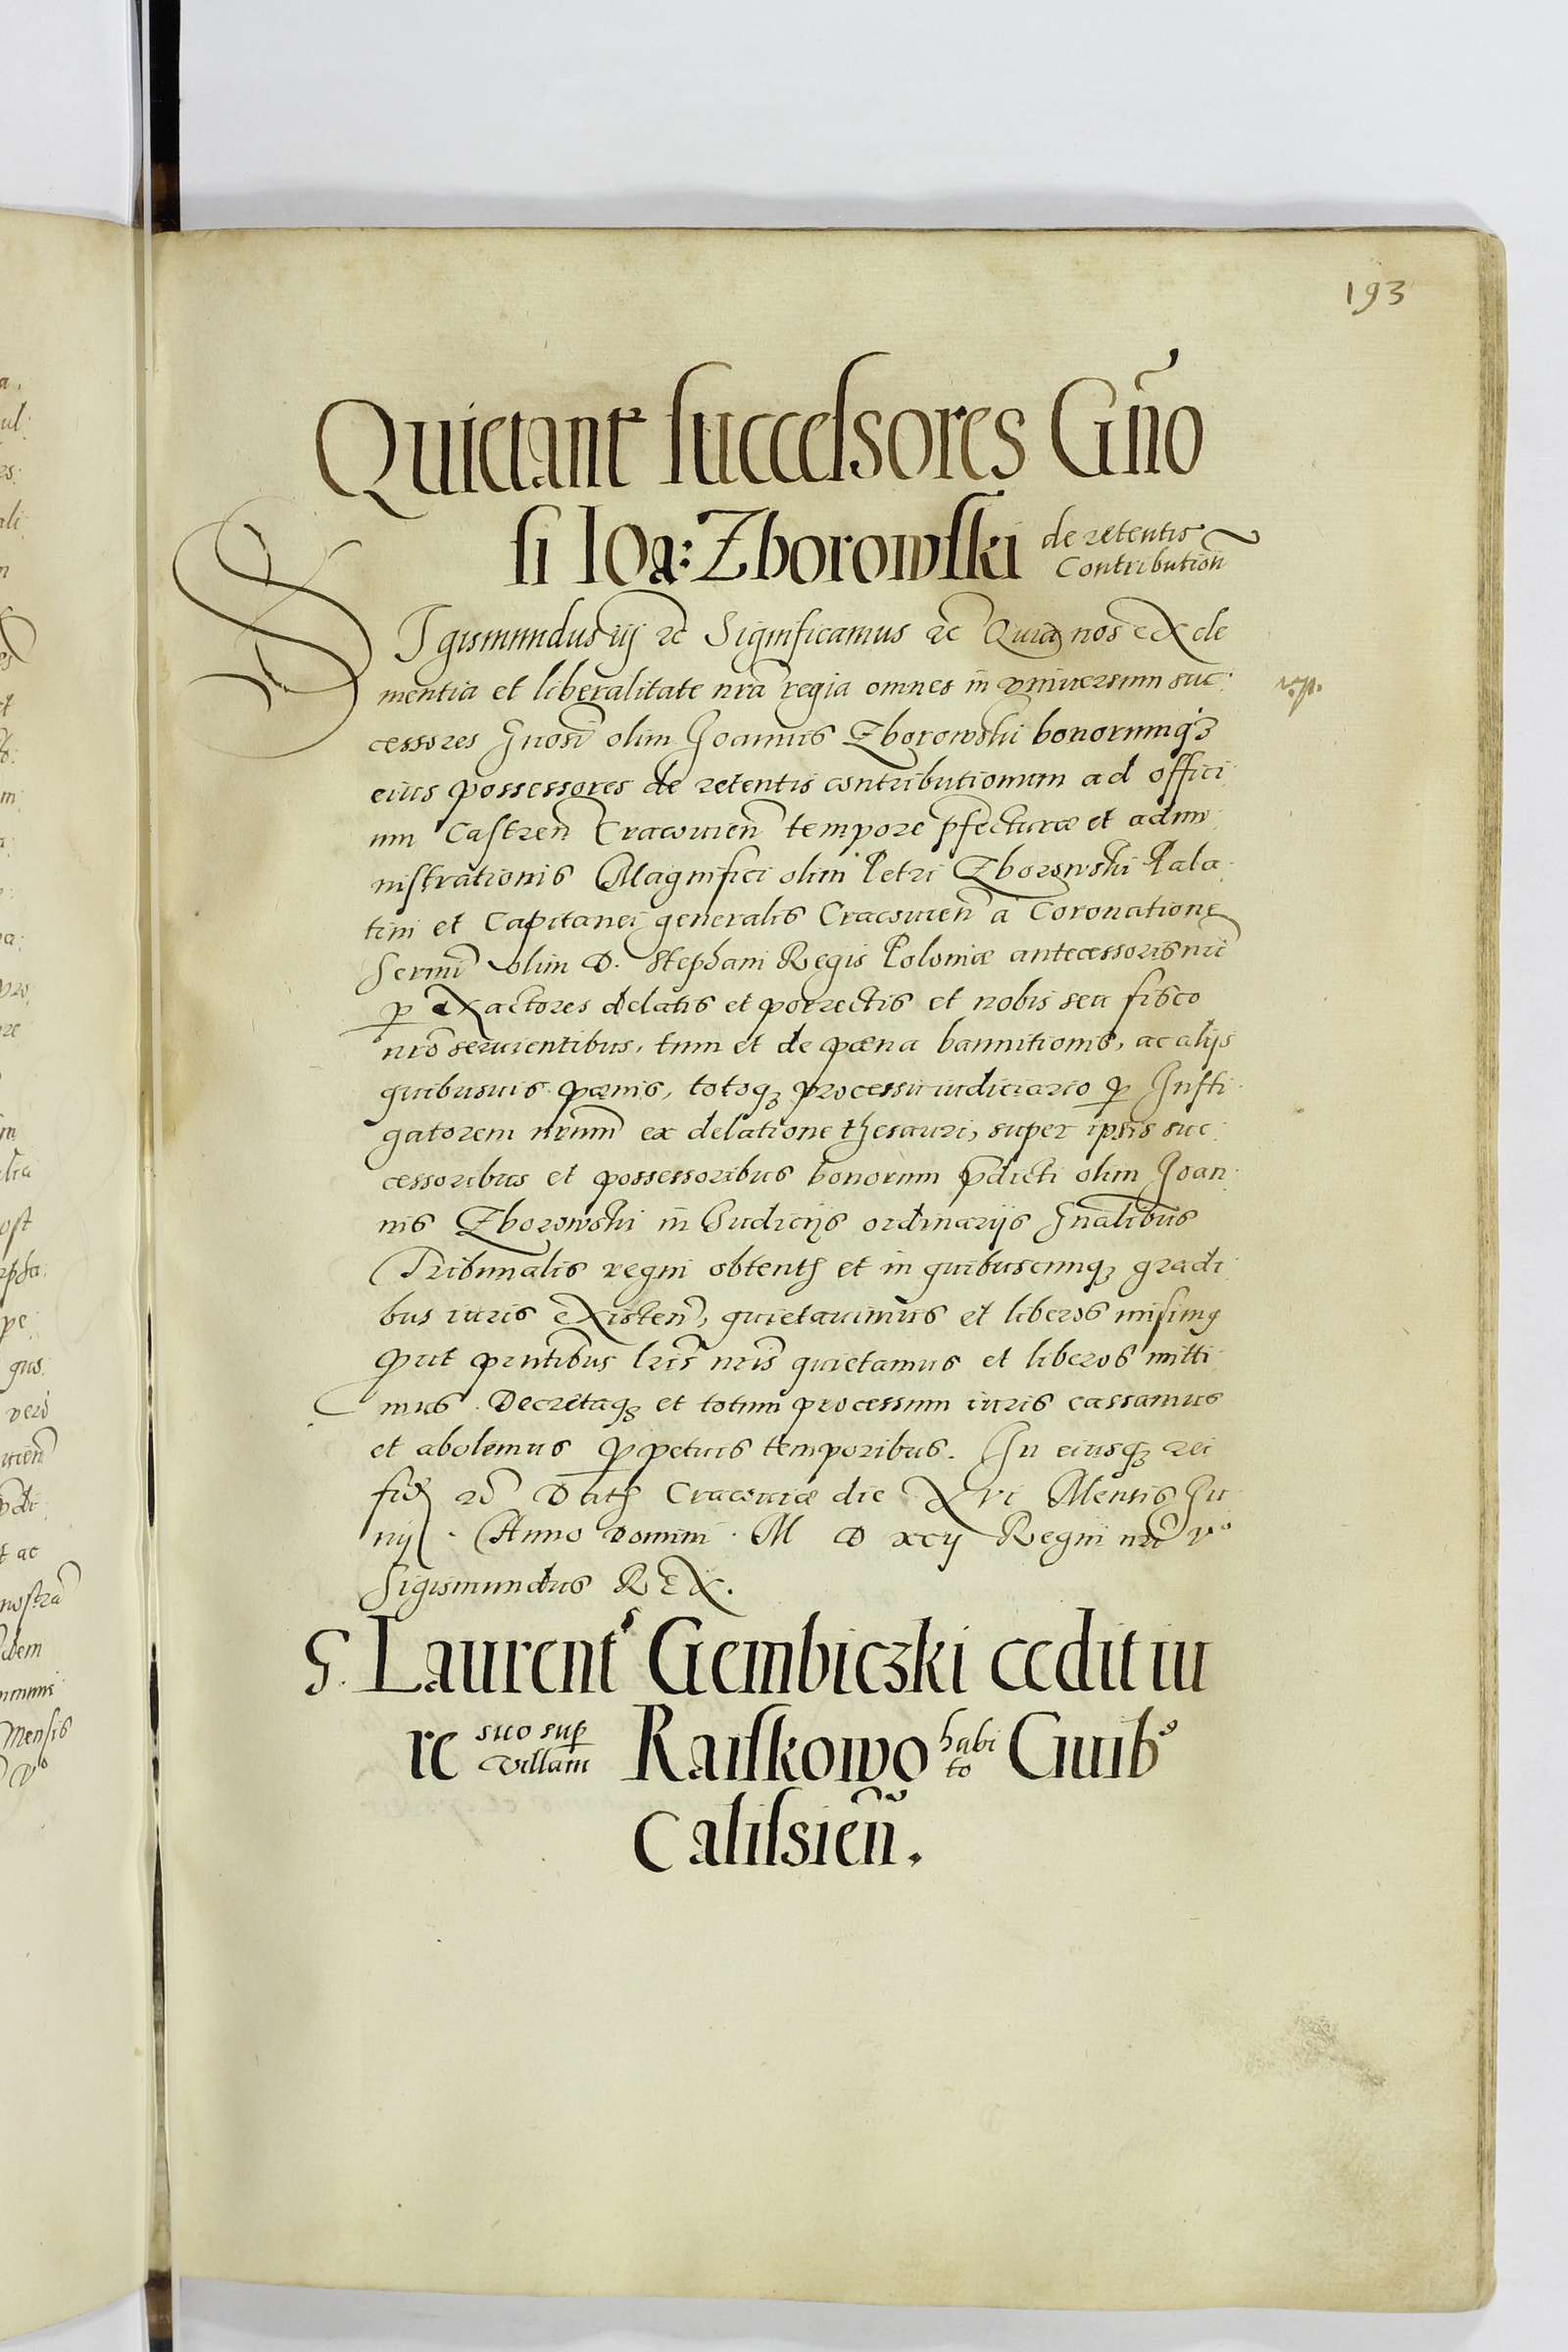 193
Quietant˜ successores Gño
si Ioa: Zborowski de retentis
Contribution̄
Sigismundus iij rc̃ Significamus rc̃ Quia nos ex cle
mentia et liberalitate nrã regia omnes in vniuersum suc:
cessores Gnosi olim Joannis Zborowski bonorumq3
eius possessores de retentis contributionum ad offici
um Castren̄ Cracouien̄ tempore p̄fecturæ et admi
nistrationis Magnifici olim Petri Zborowski Pala
tini et Capitanei generalis Cracouien̄ a Coronatione
Sermi olim D. Stephani Regis Poloniæ antecessoris nrĩ
p exactores delatis et porrectis et nobis seu fisco
nrõ seruientibus, tum et de pœna bannitionis, ac alijs
quibusuis pœnis, totoq3 processu iudiciario p Insti
gatorem nrũm ex delatione thesauri, super ipsis suc
cessoribus et possessoribus bonorum p̄dicti olim Joan
nis Zborowski in Iudicijs ordinarijs Gnalibus
Tribunalis regni obtentis et in quibuscunq3 gradi
bus iuris existen̄, quietauimus et liberos misimus
Prut p̄ntibus lris nris quietamus et liberos mitti
mus. Decretaq3 et totum processum iuris cassamus
et abolemus p petuis temporibus. In eiusq3 rei
fid̃ rc̃ Datis Cracouiæ die xvi Mensis Iu
nij. Anno Domini. M D xcij Regni nrĩ v°
Sigismundus Rex.
G. Laurent9 Gembiczki cedit iu
re suo sup villam Raiskowo habito Guib9
Calissien̄.